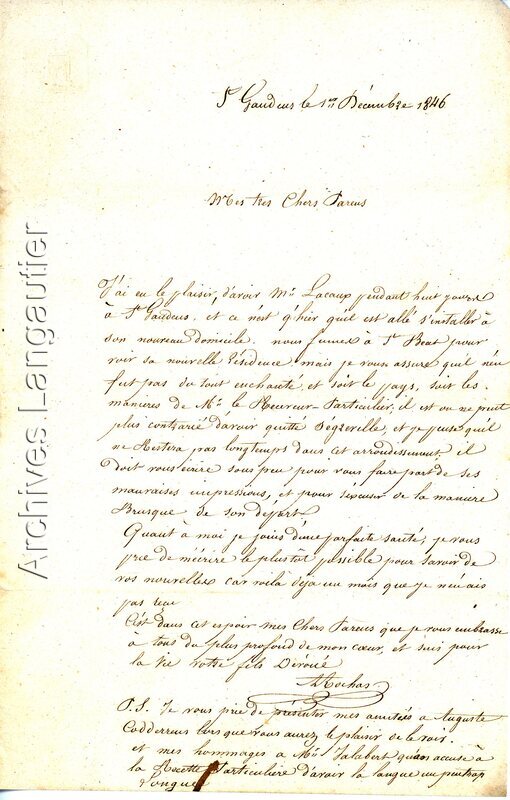 St Gaudens le 1er Décembre 1846
Mes tres Chers Parens
J'ai eu le plaisir, d'avoir Mr Lacaux pendant huit jours
à St Gaudens, et ce n'est q'hier qu'il est allé s'installer à
son nouveau domicile. nous fumes à St Béat pour
voir sa nouvelle résidence, mais je vous assure qu'il n'en
fut pas du tout enchanté, et soit le pays, soit les
manières de Mr le Receveur-Particulier, il est on ne peut
plus contrarié d'avoir quitté, et je pense qu'il
ne Restera pas longtemps dans cet arrondissement, il
doit vous écrire sous peu pour vous faire part de ses
mauvaises impressions, et pour s'éxcuser de la manière
Brusque de son depart.
Quant à moi je jouis d'une parfaite santé, je vous
prie de m'écrire le plustôt possible pour savoir de
vos nouvelles car voilà déja un mois que je n'en ais
pas reçu
C'est dans cet espoir mes Chers Parens que je vous embrasse
à tous du plus profond de mon cœur, et suis pour
la vie votre fils Dévoué
ARochas
P.S. Je vous prie de présenter mes amitiés a Auguste
Codderens lorsque vous aurez le plaisir de le voir.
et mes hommages a Mlle Jalabert qu'on accuse à
la Recette Particulière d'avoir la langue un peu trop
Longue
Archives Langautier